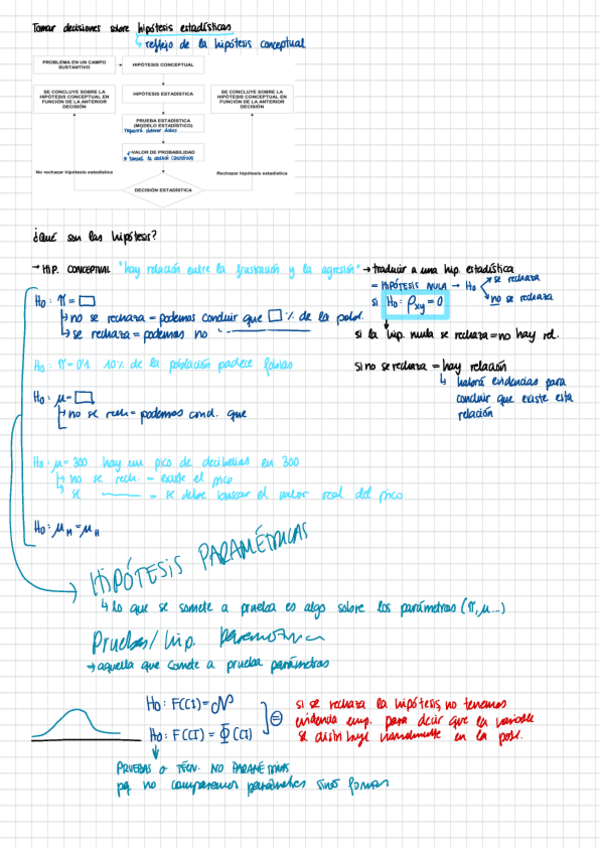 Tomar decisiones sobre hipótesis estadísticas
↳ reflejo de la hipótesis conceptual
PROBLEMA EN UN CAMPO SUSTANTIVO
HIPÓTESIS CONCEPTUAL
SE CONCLUYE SOBRE LA HIPÓTESIS CONCEPTUAL EN FUNCIÓN DE LA ANTERIOR DECISIÓN
HIPÓTESIS ESTADÍSTICA
SE CONCLUYE SOBRE LA HIPÓTESIS CONCEPTUAL EN FUNCIÓN DE LA ANTERIOR DECISIÓN
PRUEBA ESTADÍSTICA (MODELO ESTADÍSTICO)
VALOR DE PROBABILIDAD
No rechazar hipótesis estadística
Rechazar hipótesis estadística
DECISIÓN ESTADÍSTICA
¿Qué son las hipótesis?
→ HIP. CONCEPTUAL "hay relación entre la frustración y la agresión" → traducir a una hip. estadística
= HIPÓTESIS NULA → H₀
se rechaza
no se rechaza
si H₀: ρxy = 0
si la hip. nula se rechaza = no hay rel.
si no se rechaza = hay relación
↳ habrá evidencias para
concluir que existe esta
relación
H₀: π = □
↳ no se rechaza = podemos concluir que □% de la pobl.
↳ se rechaza = podemos no
H₀: π = 0'1 10% de la población padece fobias
H₀: μ = □
↳ no se rech = podemos concl. que
H₀: μ = 300 hay un pico de decibelios en 300
↳ no se rech. - existe el pico
↳ si - se debe buscar el valor real del pico
H₀: μM = μH
HIPÓTESIS PARAMÉTRICAS
↳ lo que se somete a prueba es algo sobre los parámetros (π, μ...)
Pruebas/hip. paramétrica
→ aquella que somete a prueba parámetros
H₀: F(CI) = N
H₀: F(CI) = Φ(CI)
si se rechaza la hipótesis, no tenemos
evidencia emp. para decir que la variable
se distribuye normalmente en la pobl.
PRUEBAS o TÉCN. NO PARAMÉTRICAS
pq no comparamos parámetros sinos formas